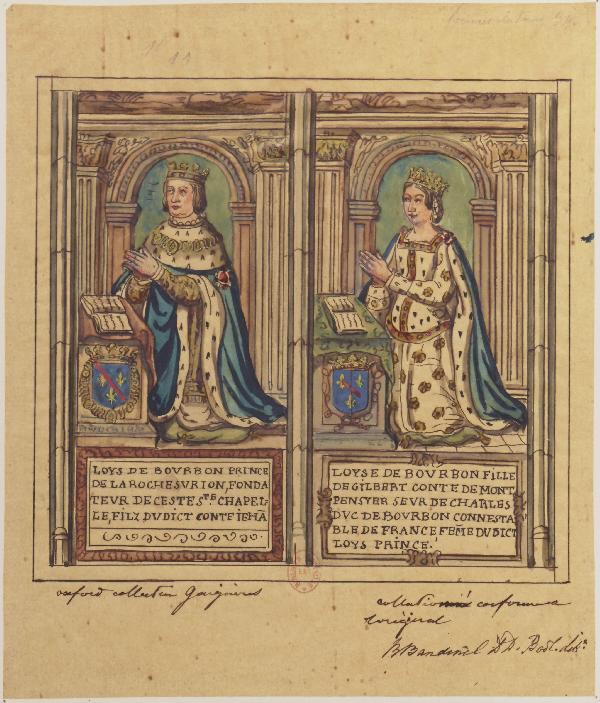 11
LOYS DE BOVRBON PRINCE
DE LA ROCHESVRION, FONDA
TEVR DE CESTE Sᵗᵉ CHAPEL-
LE, FILZ DVDICT CONTE IEHÃ
LOYSE DE BOVRBON FILLE
DE GILBERT CONTE DE MONT
PENSYER SEVR DE CHARLES
DVC DE BOVRBON CONNESTA
BLE DE FRANCE FEM̃E DVDICT
LOYS PRINCE.
oxford collection Gaignieres
collationné conforme a
l'original
B Bandinel D.D. Bodl. Libⁿ